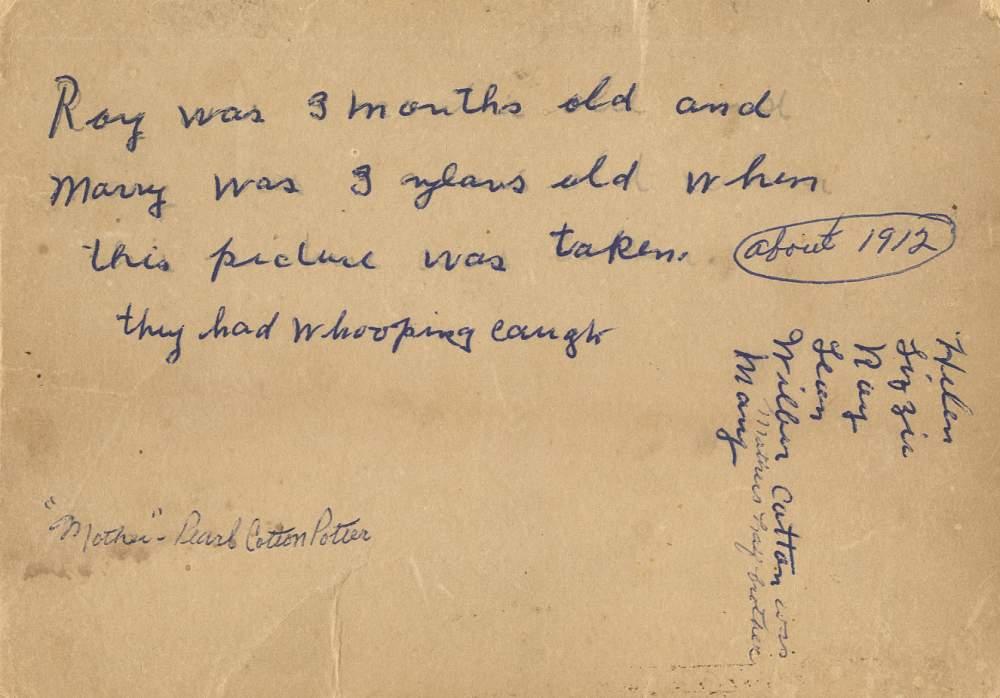 Roy was 3 months old and
Marry was 3 years old when
this picture was taken.
about 1912
they had whooping caugh
Helen
Lizzie
Roy
Leon
Wilber Cotton was
Mothers half brother
Mary
"Mother" - Pearl Cotton Potter